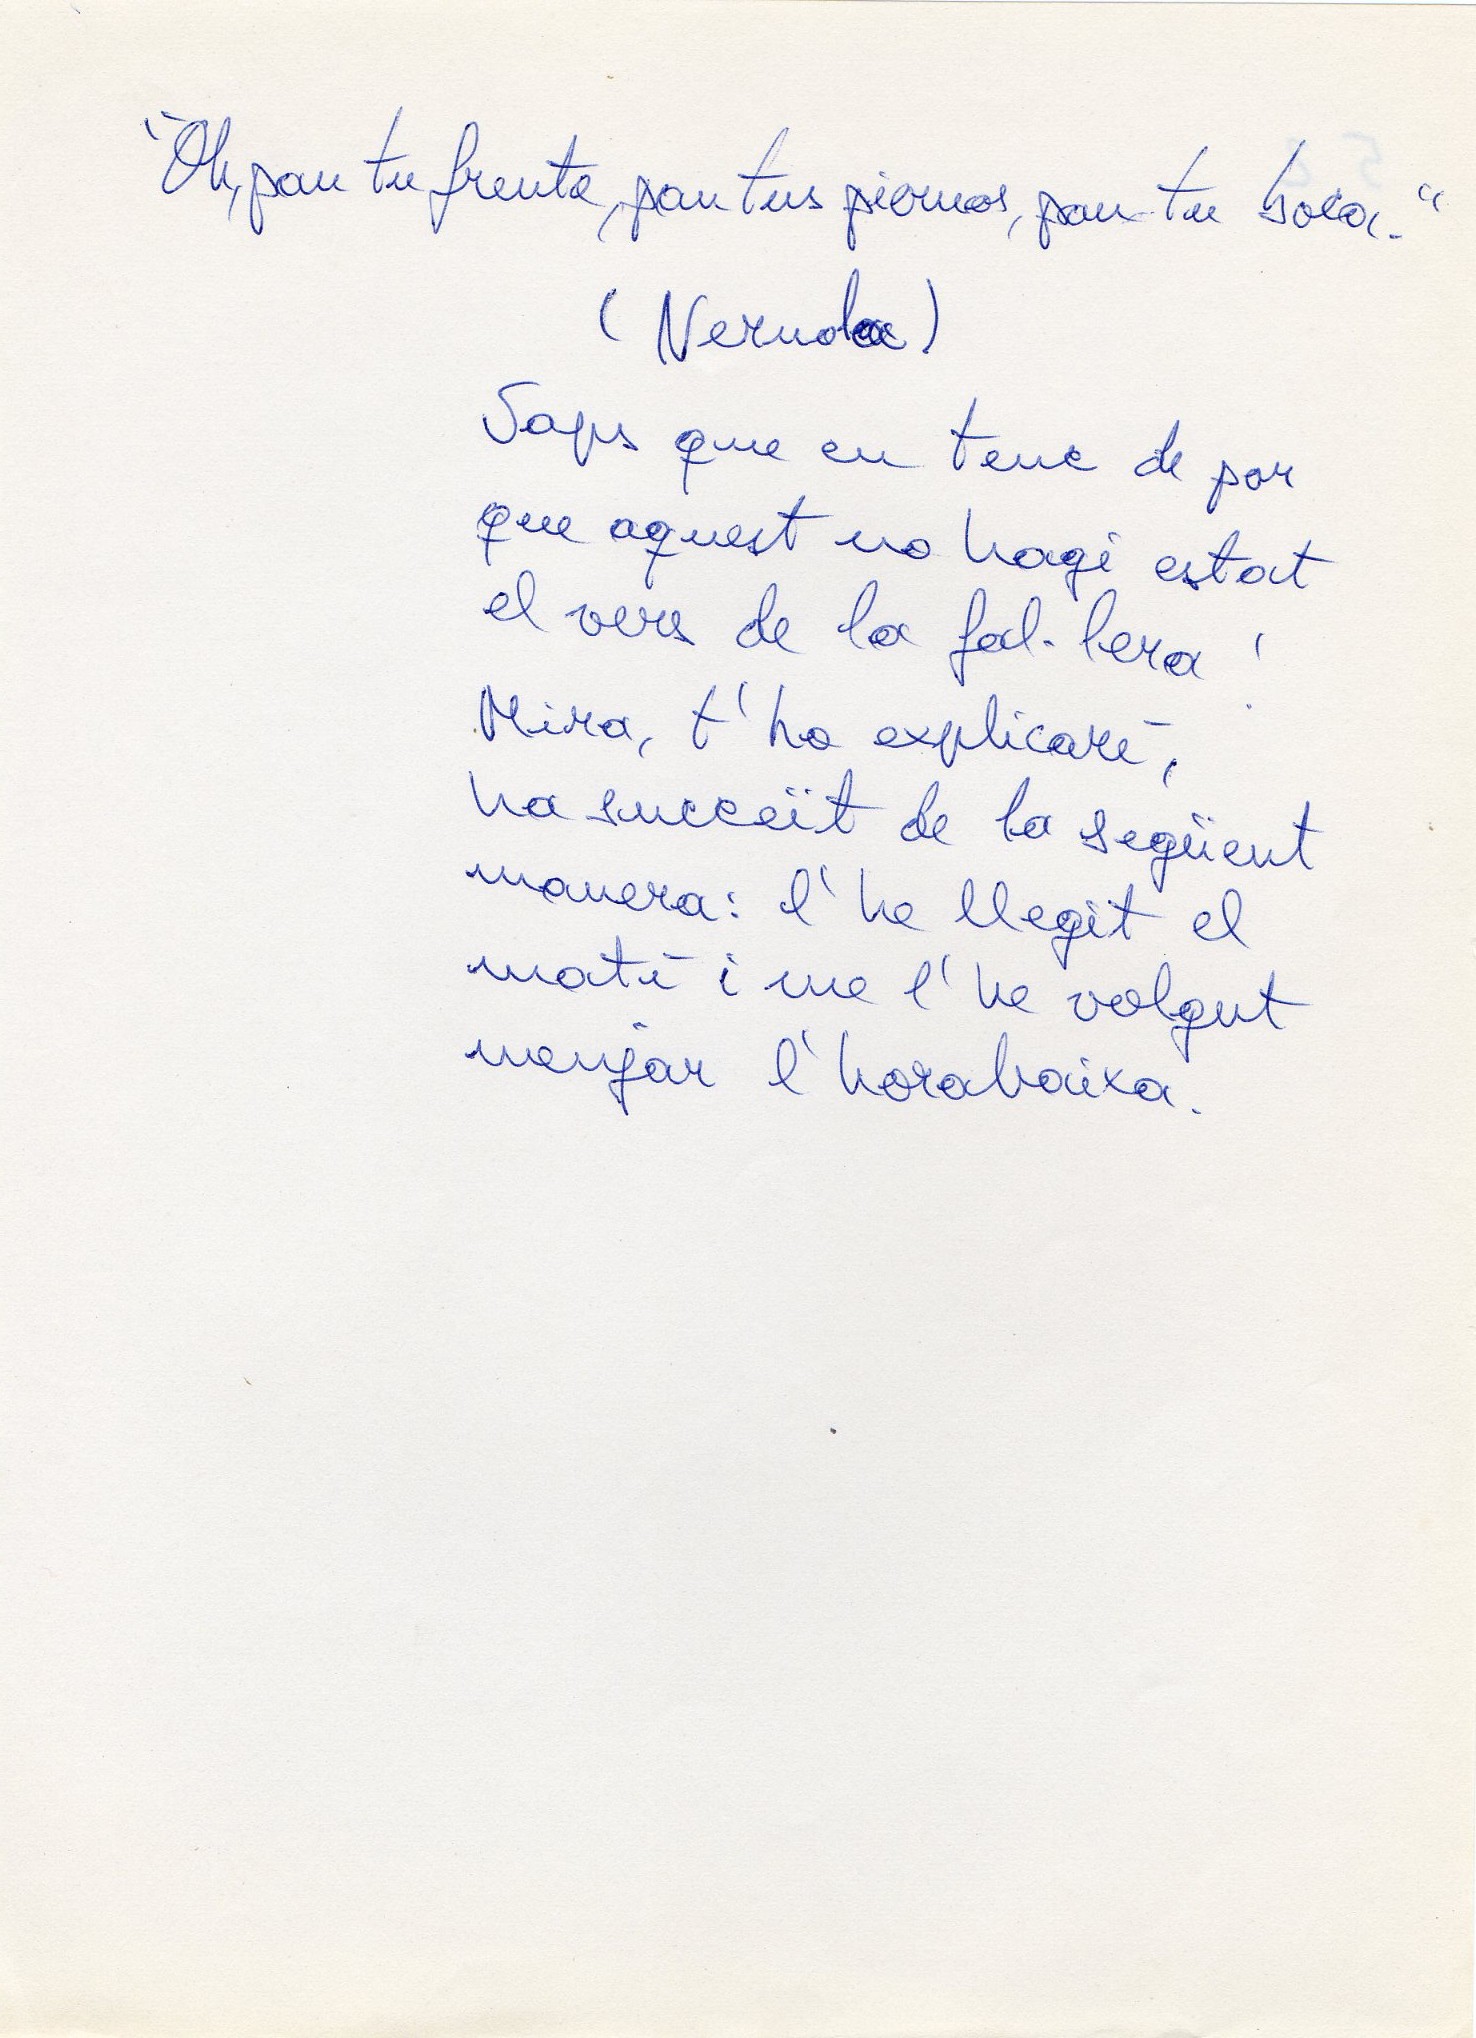 "Oh, pan tu frente, pan tus piernas, pan tu boca."
(Neruda)
Saps que en tenc de por
que aquest no hagi estat
el vers de la fal·lera!
Mira, t'ho explicaré,
ha succeït de la següent
manera: l'he llegit el
matí i me l'he volgut
menjar l'horabaixa.